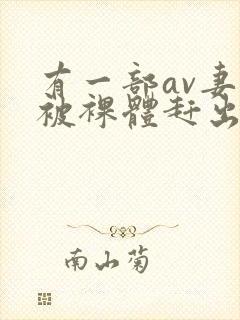 有一部av妻
被裸體赶出
南山菊